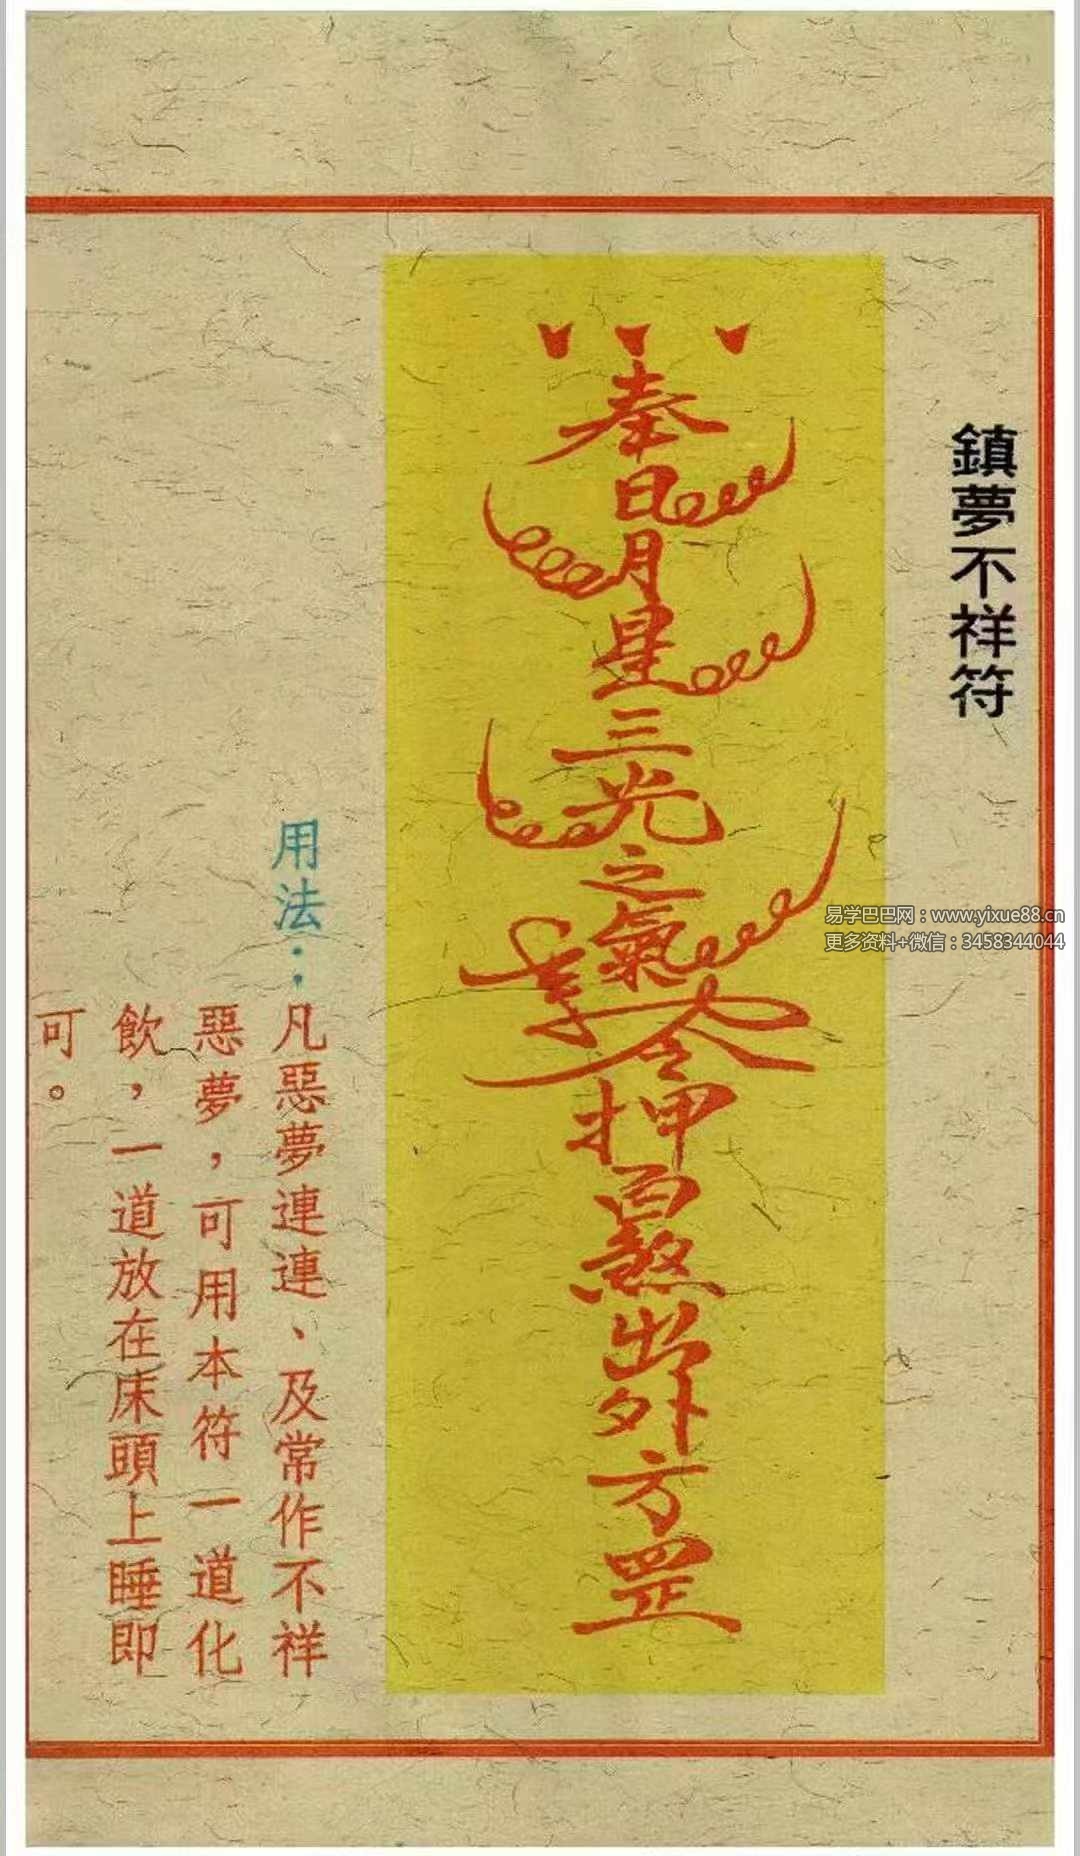 鎮夢不祥符
奉日月星三光之氣
令押百煞出外方罡
用法：凡惡夢連連、及常作不祥
惡夢，可用本符一道化
飲，一道放在床頭上睡即
可。
易学巴巴网：www.yixue88.cn
更多资料+微信：3458344044